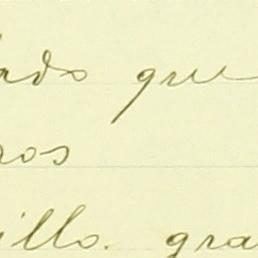 ado que
ros
illo. gra